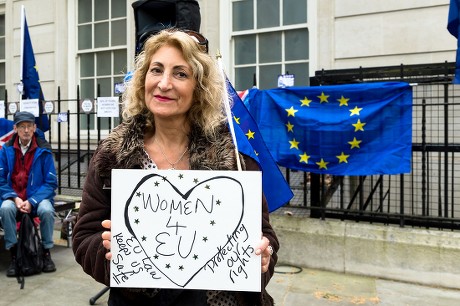 WOMEN
4
EU
EU Law
Keeps US
Safe!!
Protecting
our
rights